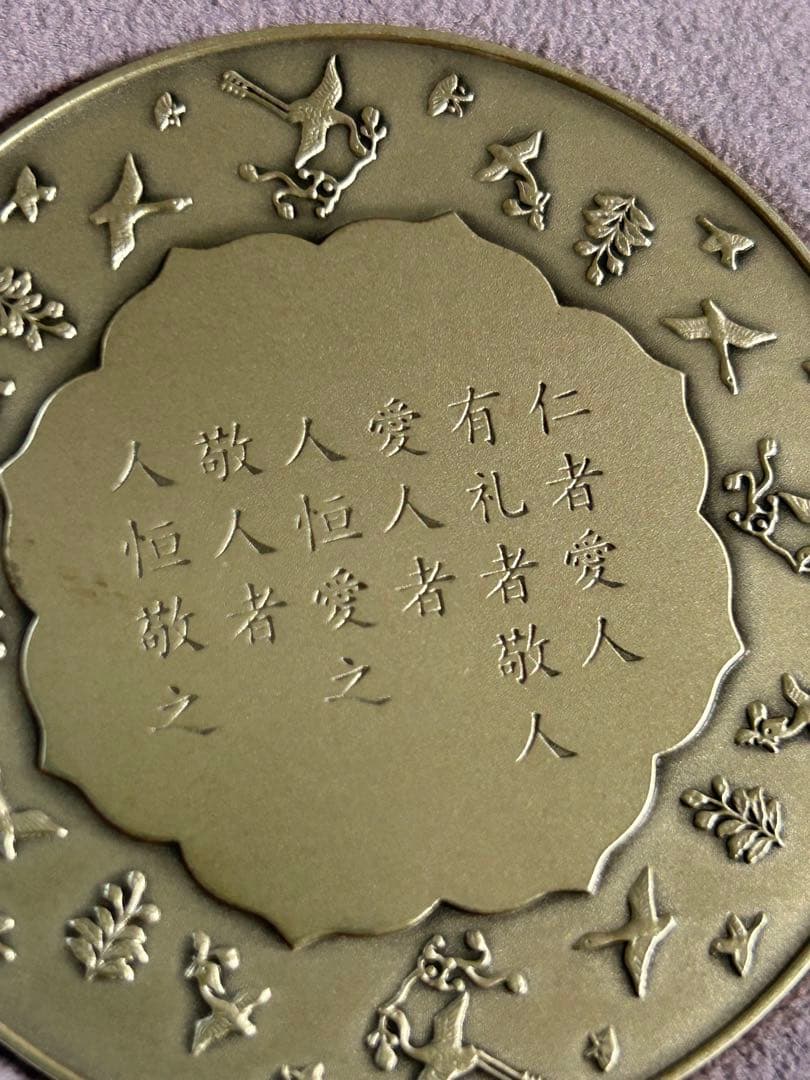 仁者愛人
有礼者敬人
愛人者
人恒愛之
敬人者
人恒敬之